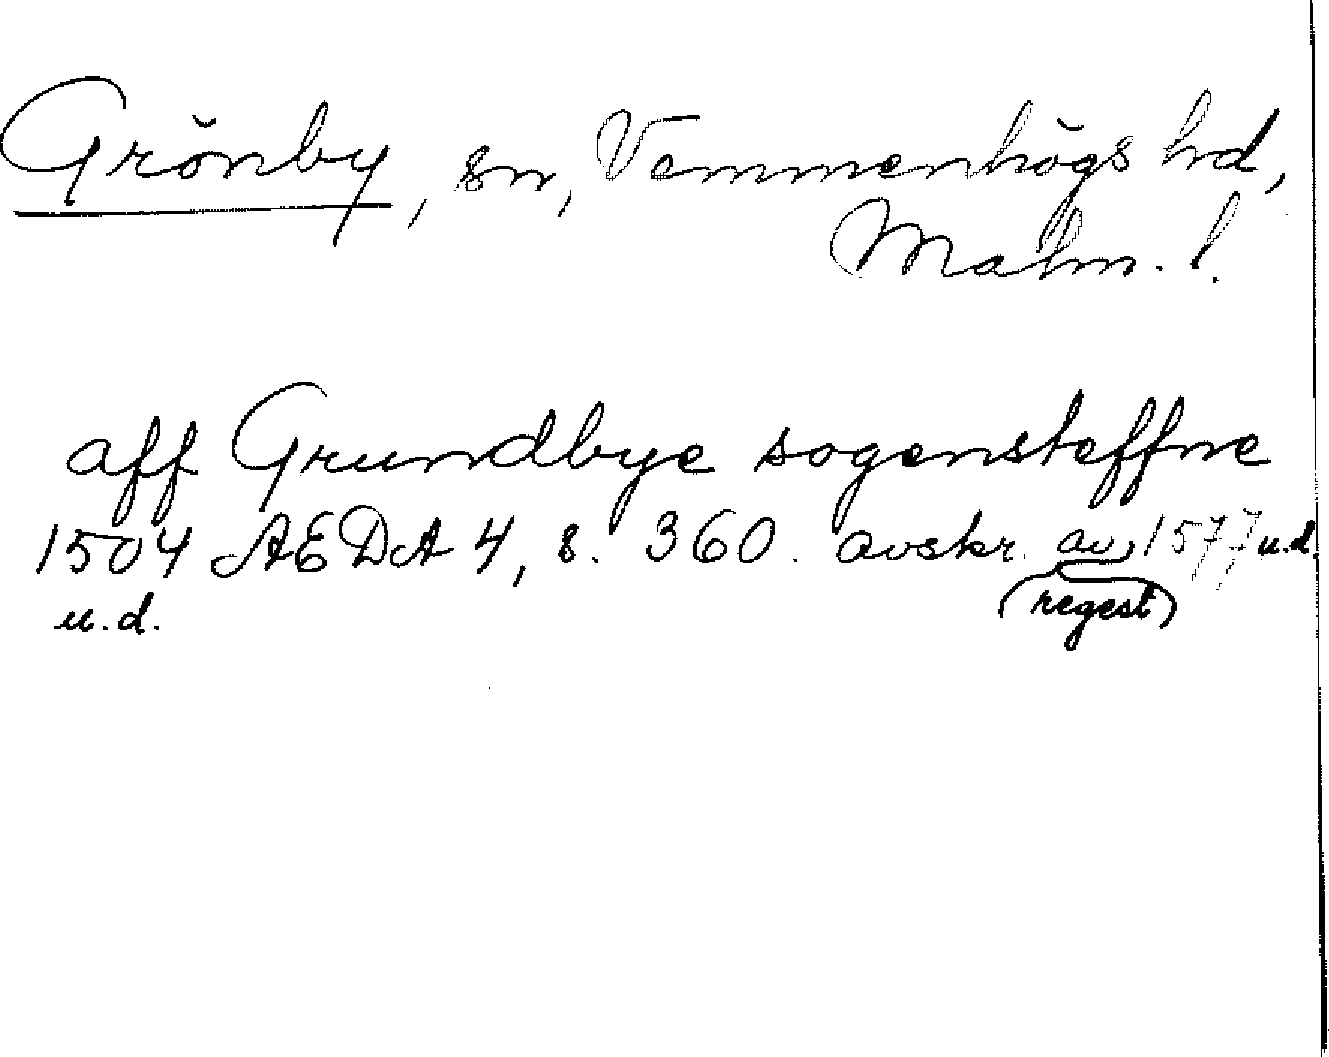 Grönby, sn, Vemmenhögs hd,
Malm. l.
aff Grundbye sogensteffne
1504 AEDA 4, s. 360. avskr. av 1577 u.d.
u.d. (regest)